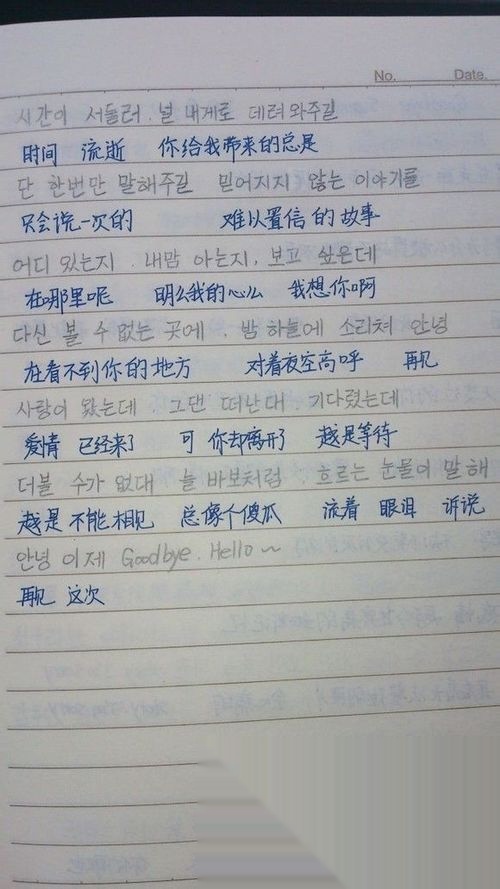 No. Date.
시간이 서둘러. 널 내게로 데려와주길
时间 流逝 你给我带来的总是
단 한번만 말해주길 믿어지지 않는 이야기를
只会说一次的 难以置信的故事
어디 있는지. 내맘 아는지, 보고 싶은데
在哪里呢 明么我的心么 我想你啊
다신 볼 수 없는 곳에. 밤하늘에 소리쳐 안녕
在看不到你的地方 对着夜空高呼 再见
사랑이 왔는데. 그댄 떠난대. 기다렸는데
爱情 已经来了 可 你却离开了 越是等待
더볼 수가 없대 늘 바보처럼. 흐르는 눈물이 말해
越是不能相见 总像个傻瓜 流着 眼泪 诉说
안녕 이제 Goodbye. Hello~
再见 这次